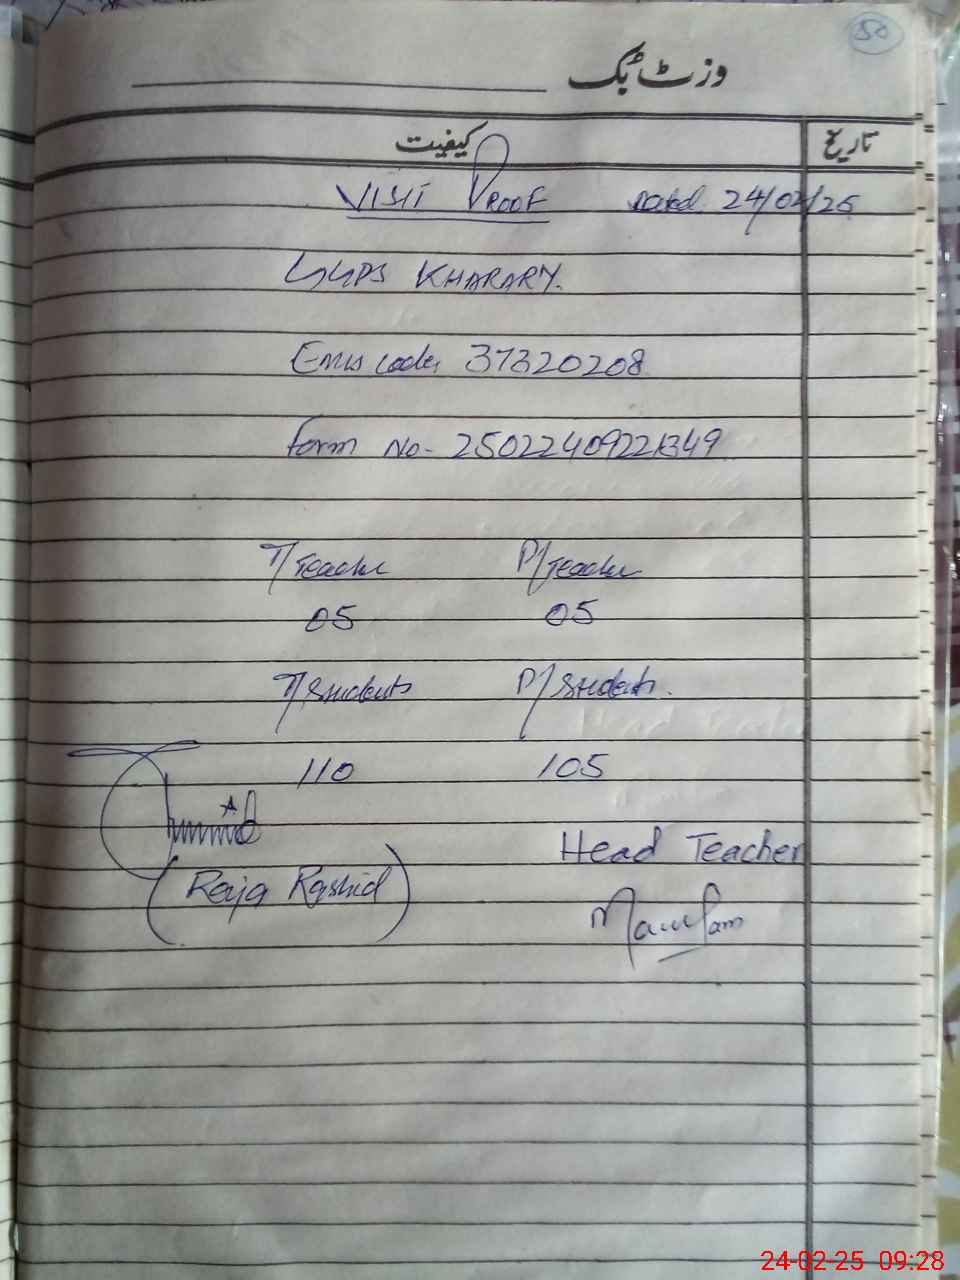 50
وزٹ بک
کیفیت تاریخ
VISIT PROOF Dated 24/02/25
GGPS KHARARY.
Emis code, 37320208
form No- 25022409221349
T/Teacher P/Teacher
05 05
T/Students P/Students.
110 105
(Raja Rashid)
Head Teacher
24-02-25 09:28